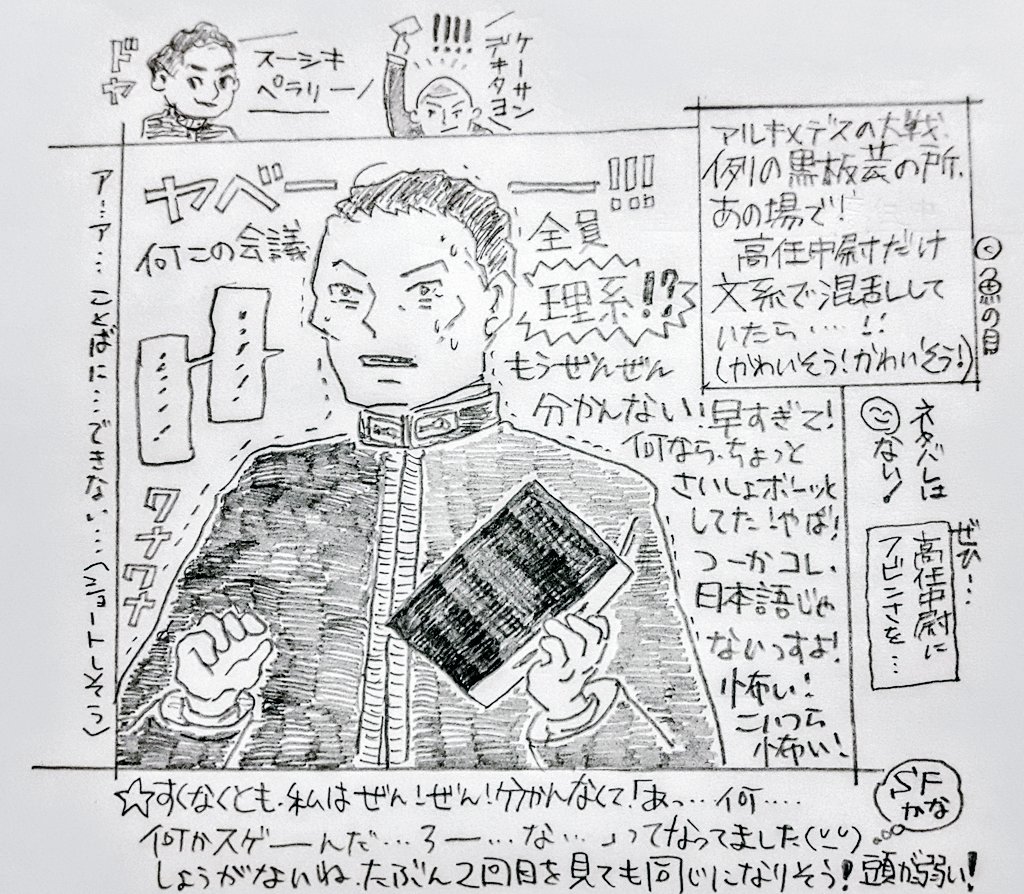 ドヤ
スーシキ
ペラリーノ
!!!!
ケーサン
デキタヨ
アルキメデスの大戦、
例の黒板芸の所、
あの場で!
高任中尉だけ
文系で混乱して
いたら……!!
(かわいそう!かわいそう!)
魚の目
ヤベーー!!!
何この会議
全員
理系!?
もうぜんぜん
分かんない!早すぎて!
何なら、ちょっと
さいしょボーッと
してた!やば!
つーかコレ、
日本語じゃ
ないっすよ!
怖い!
こいつら
怖い!
……
……
ワナワナ
ア…ア…ことばに…できない…(ショートしそう)
ネタバレは
ない!
ぜひ…
高任中尉に
フビンさを…
☆すくなくとも、私はぜん!ぜん!分かんなくて、「あっ…何……
何かスゲーんだ…ろー…な…」ってなってました(ーー)
しょうがないね、たぶん2回目を見ても同じになりそう!頭が弱い!
SF
かな